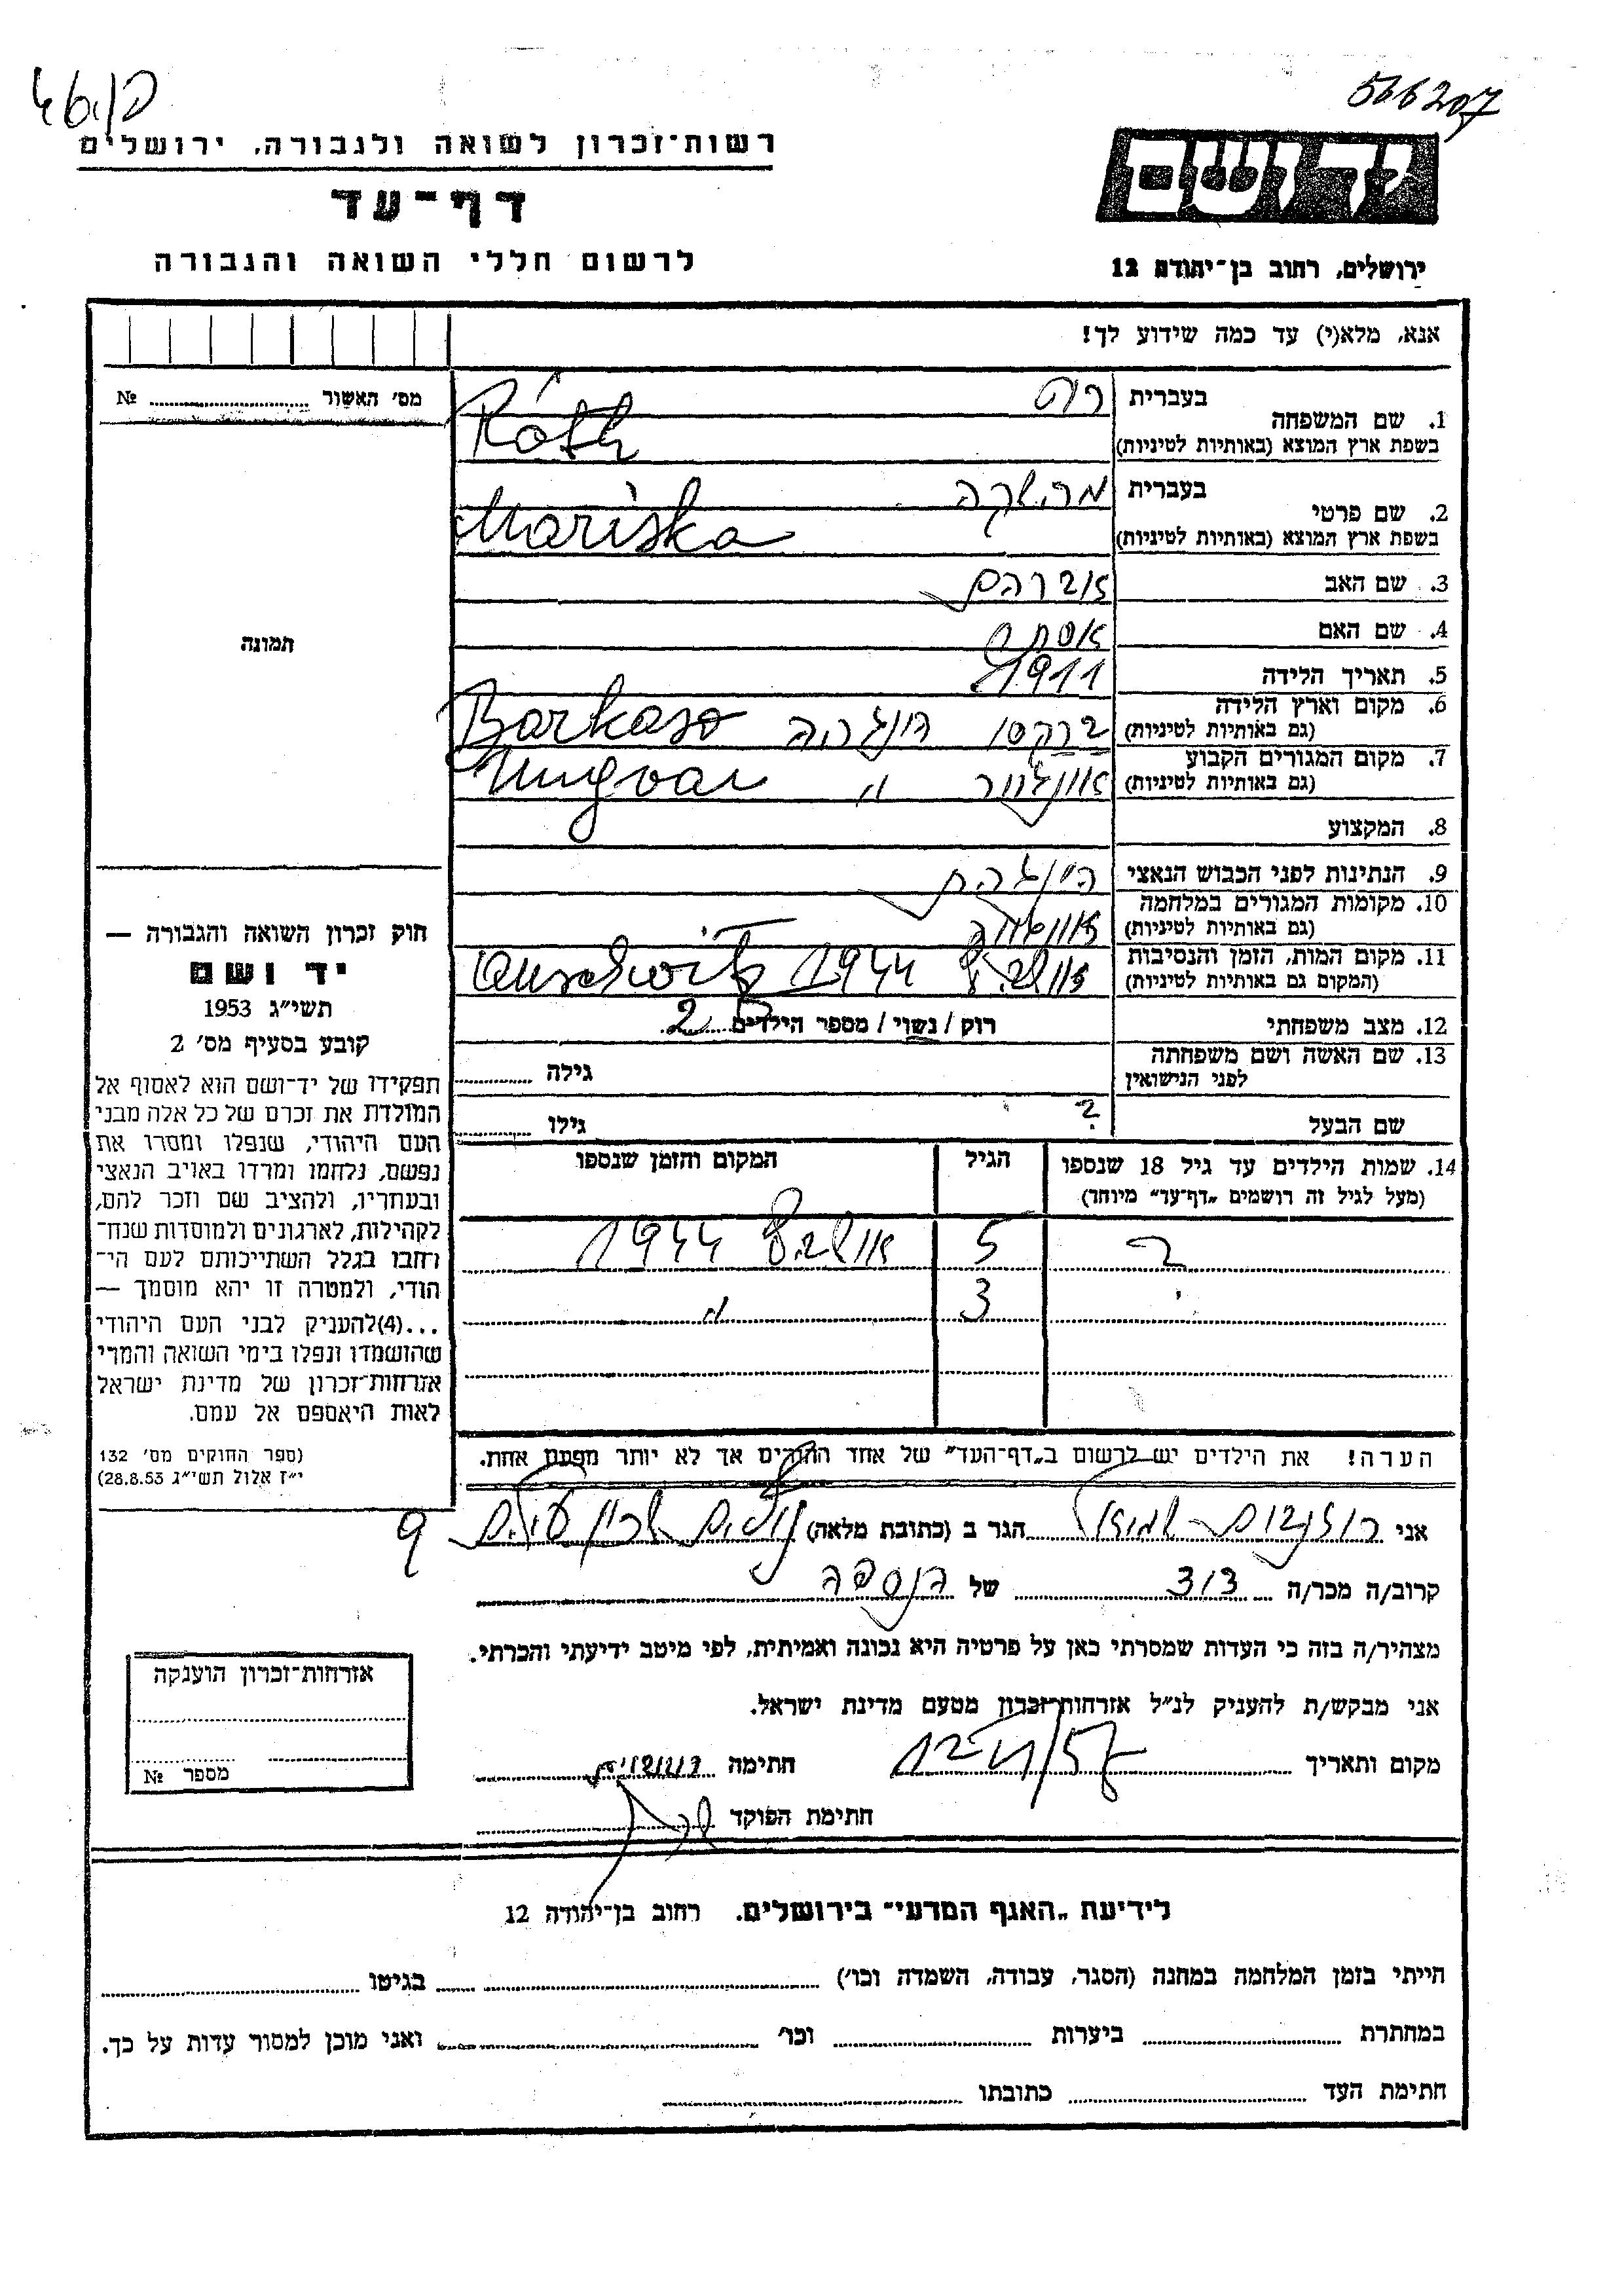 566207
רשות־זכרון לשואה ולגבורה, ירושלים
יד ושם
דף־עד
לרשום חללי השואה והגבורה
ירושלים, רחוב בן־יהודה 12
אנא, מלא(י) עד כמה שידוע לך!
מס׳ האשור № 
1. שם המשפחה בעברית רוט
בשפת ארץ המוצא (באותיות לטיניות) Róth
2. שם פרטי בעברית מרישקה
בשפת ארץ המוצא (באותיות לטיניות) Mariska
3. שם האב אברהם
4. שם האם אסתר
תמונה
5. תאריך הלידה 1911
6. מקום וארץ הלידה ברקסו הונגריה Barkaso
(גם באותיות לטיניות)
7. מקום המגורים הקבוע אונגוור " Ungvar
(גם באותיות לטיניות)
8. המקצוע
9. הנתינות לפני הכבוש הנאצי הונגרית
10. מקומות המגורים במלחמה
(גם באותיות לטיניות)
11. מקום המות, הזמן והנסיבות אושביץ 1944 Auschwitz
(המקום גם באותיות לטיניות)
12. מצב משפחתי רוק / נשוי / מספר הילדים 2
13. שם האשה ושם משפחתה
לפני הנישואין גילה
שם הבעל ? גילו
14. שמות הילדים עד גיל 18 שנספו הגיל המקום והזמן שנספו
(מעל לגיל זה רושמים „דף־עד״ מיוחד)
? 5 אושביץ 1944
3 "
הערה! את הילדים יש לרשום ב„דף־העד״ של אחד ההורים אך לא יותר מפעם אחת.
חוק זכרון השואה והגבורה —
יד ושם
תשי״ג 1953
קובע בסעיף מס׳ 2
תפקידו של יד־ושם הוא לאסוף אל
המולדת את זכרם של כל אלה מבני
העם היהודי, שנפלו ומסרו את
נפשם, נלחמו ומרדו באויב הנאצי
ובעוזריו, ולהציב שם וזכר להם,
לקהילות, לארגונים ולמוסדות שנח־
רחבו בגלל השתייכותם לעם הי־
הודי, ולמטרה זו יהא מוסמך —
...(4)להעניק לבני העם היהודי
שהושמדו ונפלו בימי השואה והמרי
אזרחות־זכרון של מדינת ישראל
לאות היאספם אל עמם.
(ספר החוקים מס׳ 132
י״ז אלול תשי״ג 28.8.53)
אני שמואל הגר ב (כתובת מלאה)
קרוב/ה מכר/ה דוד של הנספה
מצהיר/ה בזה כי העדות שמסרתי כאן על פרטיה היא נכונה ואמיתית, לפי מיטב ידיעתי והכרתי.
אני מבקש/ת להעניק לנ״ל אזרחות־זכרון מטעם מדינת ישראל.
מקום ותאריך חתימה
חתימת הפוקד
אזרחות־זכרון הוענקה
מספר №
לידיעת „האגף המדעי״ בירושלים. רחוב בן־יהודה 12
הייתי בזמן המלחמה במחנה (הסגר, עבודה, השמדה וכו׳) בגיטו
במחתרת ביערות וכו׳ ואני מוכן למסור עדות על כך.
חתימת העד כתובתו